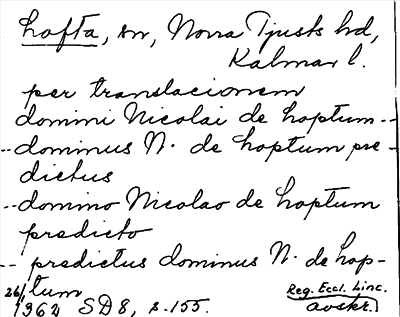 Lofta, sn, Norra Tjusts hd,
Kalmar l.
per translacionem
domini Nicolai de hoptum --
-- dominus N. de hoptum pre-
dictus
-- domino Nicolao de hoptum
predicto
-- predictus dominus N. de hop-
tum
26/1 1962 SD 8, s. 155. Reg. Eccl. Linc.
avskr.